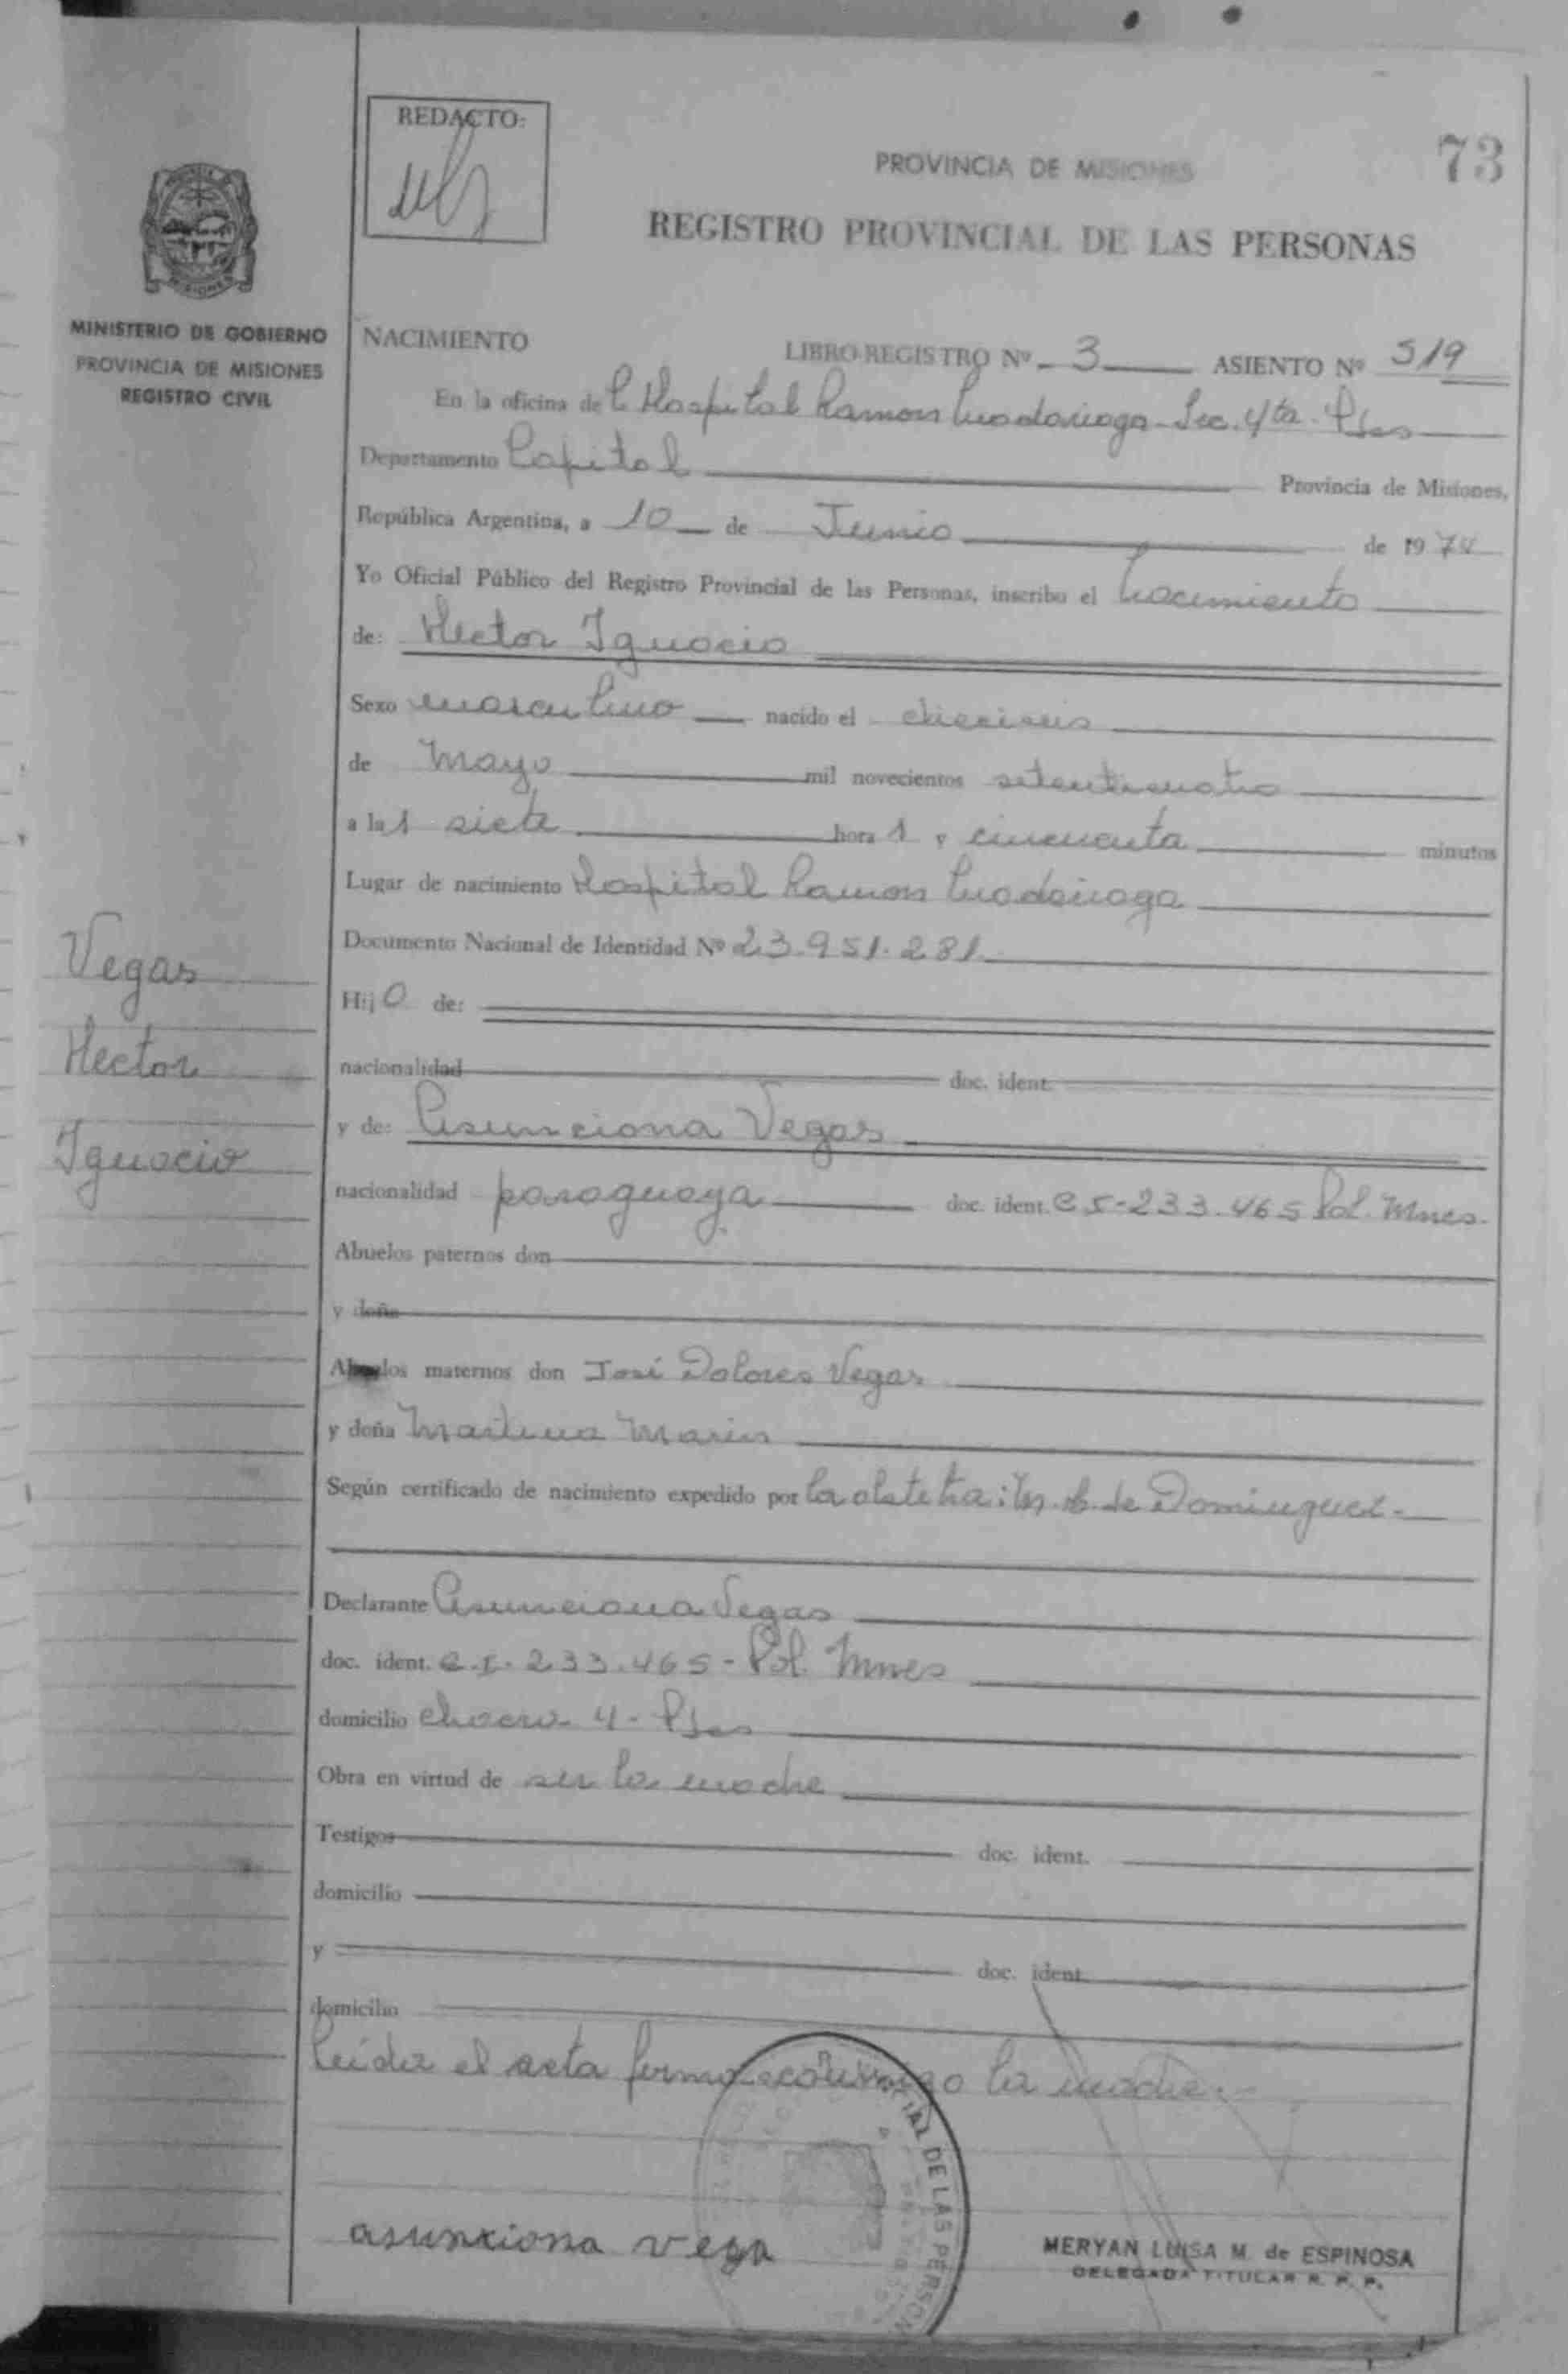 REDACTO:
73
PROVINCIA DE MISIONES
REGISTRO PROVINCIAL DE LAS PERSONAS
MINISTERIO DE GOBIERNO
PROVINCIA DE MISIONES
REGISTRO CIVIL
Vegas
Hector
Ignacio
NACIMIENTO LIBRO REGISTRO Nº 3 ASIENTO Nº 519
En la oficina de Hospital Ramon Madariaga - Sec. 4ta. Pdas
Departamento Capital Provincia de Misiones,
República Argentina, a 10 de Junio de 1974
Yo Oficial Público del Registro Provincial de las Personas, inscribo el nacimiento
de: Hector Ignacio
Sexo masculino nacido el dieciseis
de Mayo mil novecientos setenticuatro
a las siete horas y cincuenta minutos
Lugar de nacimiento Hospital Ramon Madariaga
Documento Nacional de Identidad Nº 23.951.281
Hijo de:
nacionalidad doc. ident.
y de: Asunciona Vegas
nacionalidad paraguaya doc. ident. 233.465 Pol. Mnes.
Abuelos paternos don
y doña
Abuelos maternos don José Dolores Vegas
y doña Martina
Según certificado de nacimiento expedido por la obstetra: de Dominguez.-
Declarante Asunciona Vegas
doc. ident. C.I. 233.465 - Pol. Mnes
domicilio chacra 4 - Pdas
Obra en virtud de ser la madre
Testigos doc. ident.
domicilio
y doc. ident.
domicilio
Leida el acta firma conmigo la madre.-
DE LAS PERSON
asunciona vega
MERYAN LUISA M. de ESPINOSA
DELEGADA TITULAR R. P. P.